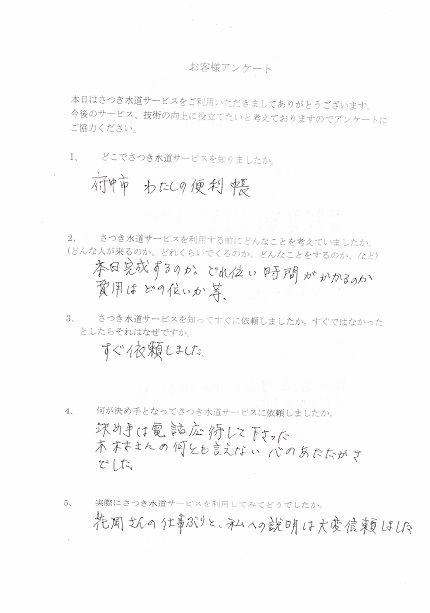 お客様アンケート
本日はさつき水道サービスをご利用いただきましてありがとうございます。
今後のサービス、技術の向上に役立てたいと考えておりますのでアンケートに
ご協力ください。
1、 どこでさつき水道サービスを知りましたか。
府中市 わたしの便利帳
2、 さつき水道サービスを利用する前にどんなことを考えていましたか。
(どんな人が来るのか、どれくらいでくるのか、どんなことをするのか、など)
本日完成するのか。どれ位い時間がかかるのか
費用はどの位いか等。
3、 さつき水道サービスを知ってすぐに依頼しましたか。すぐではなかった
としたらそれはなぜですか。
すぐ依頼しました。
4、 何が決め手となってさつき水道サービスに依頼しましたか。
決め手は電話応待して下さった
木村さんの何とも言えない心のあたたかさ
でした。
5、 実際にさつき水道サービスを利用してみてどうでしたか。
花岡さんの仕事ぶりと、私への説明は大変信頼しました